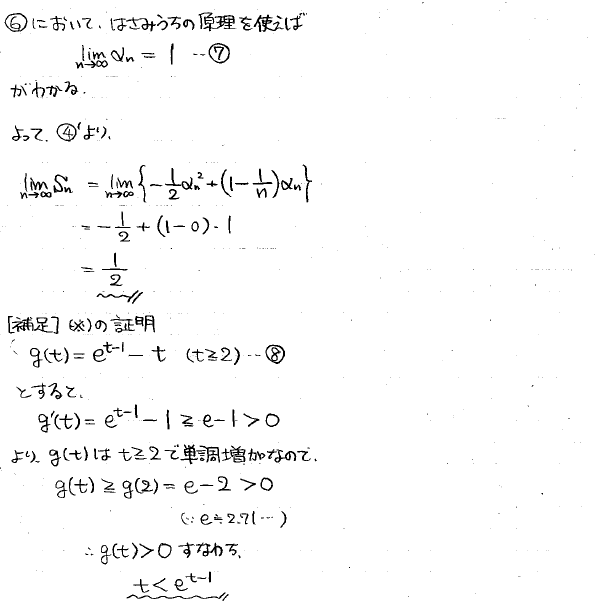 ⑥において、はさみうちの原理を使えば
lim_{n→∞} αn = 1 …⑦
がわかる.
よって、④'より、
lim_{n→∞} Sn = lim_{n→∞} {-1/2 αn² + (1 - 1/n) αn}
= -1/2 + (1-0)・1
= 1/2
[補足] (※)の証明
g(t) = e^{t-1} - t (t≧2) …⑧
とすると、
g'(t) = e^{t-1} - 1 ≧ e-1 > 0
より、g(t)は t≧2で単調増加なので、
g(t) ≧ g(2) = e-2 > 0
(∵ e≒2.71…)
∴ g(t)>0 すなわち、
t < e^{t-1}